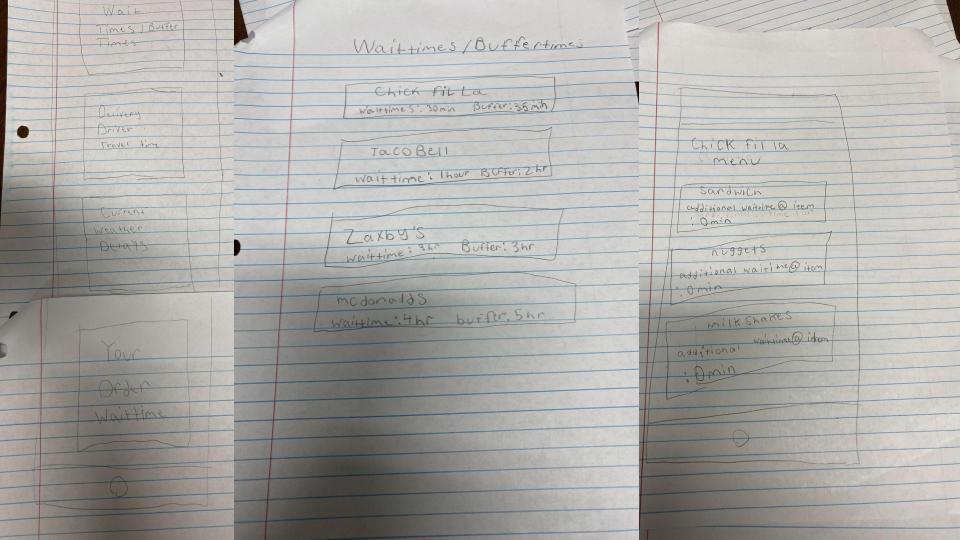 Wait
Times/Buffer
Times
Delivery
Driver
Travel time
Current
Weather
Delays
Your
Order
Waittime
Waittimes/Buffertimes
Chick fil La
Waittimes: 30min Buffer: 35min
Taco Bell
Wait time: 1hour Buffer: 2hr
Zaxby's
Waittime: 3hr Buffer: 3hr
mcdonalds
Waittime: 4hr buffer: 5hr
Chick fil la
menu
Sandwich
additional waitime@ item
: 0min
nuggets
additional waitime@ item
: 0min
milkshakes
additional waittime@ item
: 0min